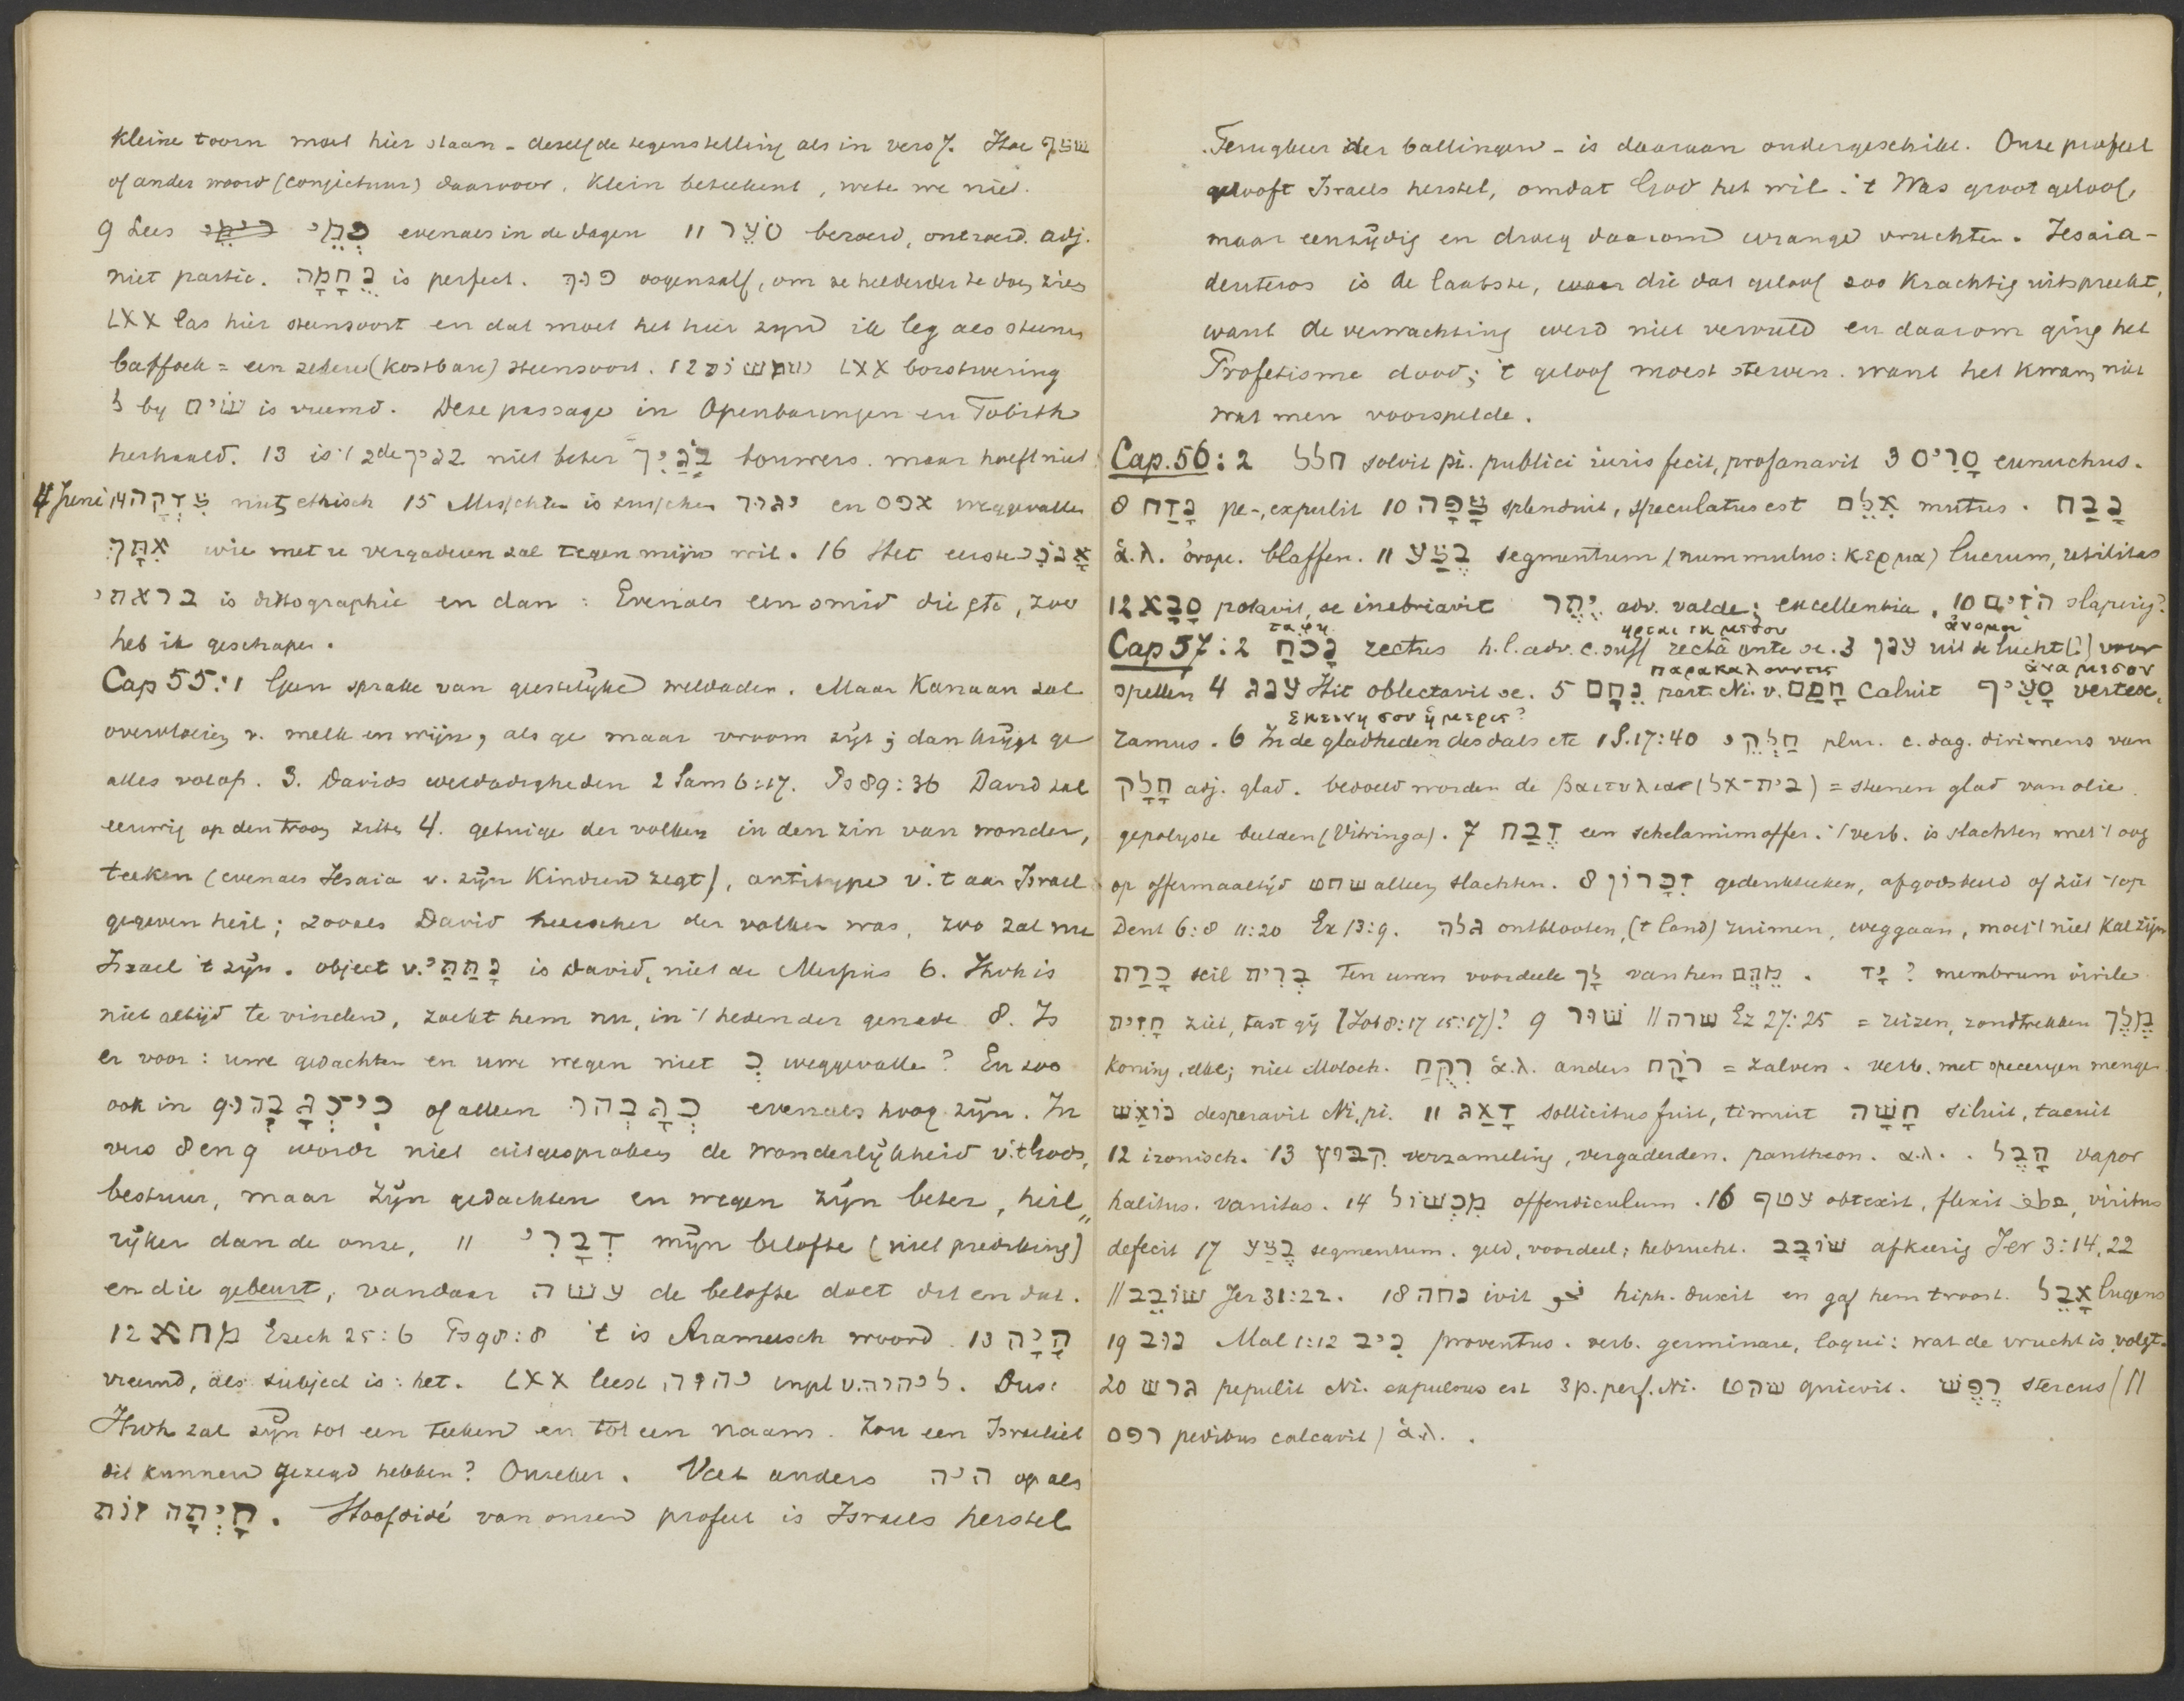 Kleine toorn moet hier staan - dezelfde tegenstelling als in vers 7. Hoe שצף
of ander woord (conjectuur) daarvoor. Klein beteekent, weten we niet.
9 Lees כִּימֵי evenals in de dagen 11 סֹעֲרָ beroerd, onroerd. adj.
niet partic. נֻחָמָה is perfect. פוך oogenzalf, om ze helderder te doen zien
LXX las hier steensoort en dat moet het hier zijn ik leg als steenen
Caffoek = een zekere (kostbare) steensoort. 12 שמשות LXX borstwering
ל by שׂים is vreemd. Deze passage in Openbaringen en Tobith
herhaald. 13 is 't 2de בניך niet beter בֹּנַיִךְ bouwers. maar hoeft niet
4 Juni 14 צְדָקָה niet ethisch 15 Misschien is tusschen יגור en אפס weggevallen
אִתָּךְ wie met u vergaderen zal tegen mijn wil. 16 Het eerste אָנֹכִי
בראתי is dittographie en dan: Evenals een smid die etc, zoo
heb ik geschapen.
Cap 55:1 Geen sprake van geestelijke weldaden. Maar Kanaan zal
overvloeien v. melk en wijn, als ge maar vroom zijt; dan krijgt ge
alles volop. 3. Davids weldadigheden 2 Sam 6:17. Ps 89:36 David zal
eeuwig op den troon zitten 4. getuige der volken in den zin van wonder,
teeken (evenals Jesaia v. zijn Kinderen zegt), antitype v. 't aan Israel
gegeven heil; zooals David heerscher der volken was, zoo zal nu
Israel 't zijn. object v. נְתַתִּי is David, niet de Messias 6. Jhvh is
niet altijd te vinden, zoekt hem nu, in 't heden der genade 8. Is
er voor: uwe gedachten en uwe wegen niet כְּ weggevallen? En zoo
ook in 9 כִּי־כְגָבְהוּ of alleen כִּגְבֹהַּ evenals hoog zijn. In
vers 8 en 9 wordt niet uitgesproken de wonderlijkheid v. 't Gods,
bestuur, maar zijn gedachten en wegen zijn beter, heil„
rijker dan de onze, 11 דְּבָרִי mijn belofte (niet prediking)
en die gebeurt, vandaar עשה de belofte doet dit en dat.
12 מחא Ezech 25:6 Ps 98:8 't is Arameesch woord. 13 הָיָה
vreemd, als subject is: het. LXX leest יהוה inpl v. ליהוה. Dus:
Jhvh zal zijn tot een teeken en tot een naam. Zou een Israeliet
dit kunnen gezegd hebben? Onzeker. Vat anders היה op als
הָיְתָה זֹות. Hoofdidé van onzen profeet is Israels herstel
Terugkeer der ballingen - is daaraan ondergeschikt. Onze profeet
gelooft Israels herstel, omdat God het wil. 't Was groot geloof,
maar eenzijdig en droeg daarom wrange vruchten. Jesaia-
deuteros is de laatste, die dat geloof zoo Krachtig uitspreekt,
want de verwachting werd niet vervuld en daarom ging het
Profetisme dood; 't geloof moest sterven. want het kwam niet
wat men voorspelde.
Cap. 56: 2 חלל solvit pi. publici iuris fecit, profanavit 3 סָרִיס eunuchus.
8 נָדַח pe-, expulit 10 צָפָה splenduit, speculatus est אִלֵּם mutus. נָבַח
ἅ.λ. ὀνομ. blaffen. 11 בֶּצַע segmentum (nummulus: κερμα) lucrum, utilitas
12 סָבָא potavit, se inebriavit יֶתֶר adv. valde; excellentia. 10 הֹזִים slaperig?
ταφη ηρται εκ μεσου ἄνομοι
Cap 57: 2 נָכֹחַ rectus h.l. adv. c. suff rectâ ante se. 3 ענן uit de lucht (?) voor
παρακαλουντες ἀνα μεσον
spellen 4 ענג Hit oblectavit se. 5 נֵחָם part. Ni. v. חָמַם caluit סָעִיף vertex,
εκεινη σου ἡ μερις?
ramus. 6 In de gladheden des dals etc 1 S. 17:40 חַלְּקֵי plur. c. dag. dirimens van
חָלָק adj. glad. bedoeld worden de βαιτυλια (בית־אל) = steenen glad van olie.
gepolyste beelden (Vitringa). 7 זֶבַח een schelamimoffer. 't verb. is slachten met 't oog
op offermaaltijd שחט alleen slachten. 8 זִכָּרוֹן gedenkteeken, afgodsbeeld of ziet 't op
Deut 6:8 11:20 Ex 13:9. גלה ontblooten, ('t land) ruimen, weggaan, moet 't niet Kal zijn
כָּרַת scil בְּרִית Ten uwen voordeele לָךְ van hen מֵהֶם. יָד ? membrum virile
חָזִית ziet, tast gij (Job 8:17 15:17)? 9 שׁוּר || שרה Ez 27:25 = reizen, rondtrekken מֶלֶךְ
Koning, elke; niet Moloch. רִקֻּחַ ἅ.λ. anders רֹקַח = zalven. verb. met specerijen mengen
נוֹאַשׁ desperavit Ni, pi. 11 דָּאַג sollicitus fuit, timuit חָשָׁה siluit, tacuit
12 ironisch. 13 קִבּוּץ verzameling, vergaderden. pantheon. ἅ.λ. . הָבֶל vapor
halitus. vanitas. 14 מִכְשׁוֹל offendiculum. 16 עטף obtexit, flexit, viribus
defecit 17 בֶּצַע segmentum. geld, voordeel; hebzucht. שׁוֹבָב afkeerig Jer 3:14, 22
|| שׁוֹבֵב Jer 31:22. 18 נחה ivit hiph. duxit en gaf hem troost. אָבֵל lugens
19 נוב Mal 1:12 נִיב proventus. verb. germinare, loqui: wat de vrucht is volgt.
20 גרש pepulit Ni. expulsus est 3 p. perf. Ni. שקט quievit. רֶפֶשׁ stercus (||
רפס pedibus calcavit) ἅ.λ. .